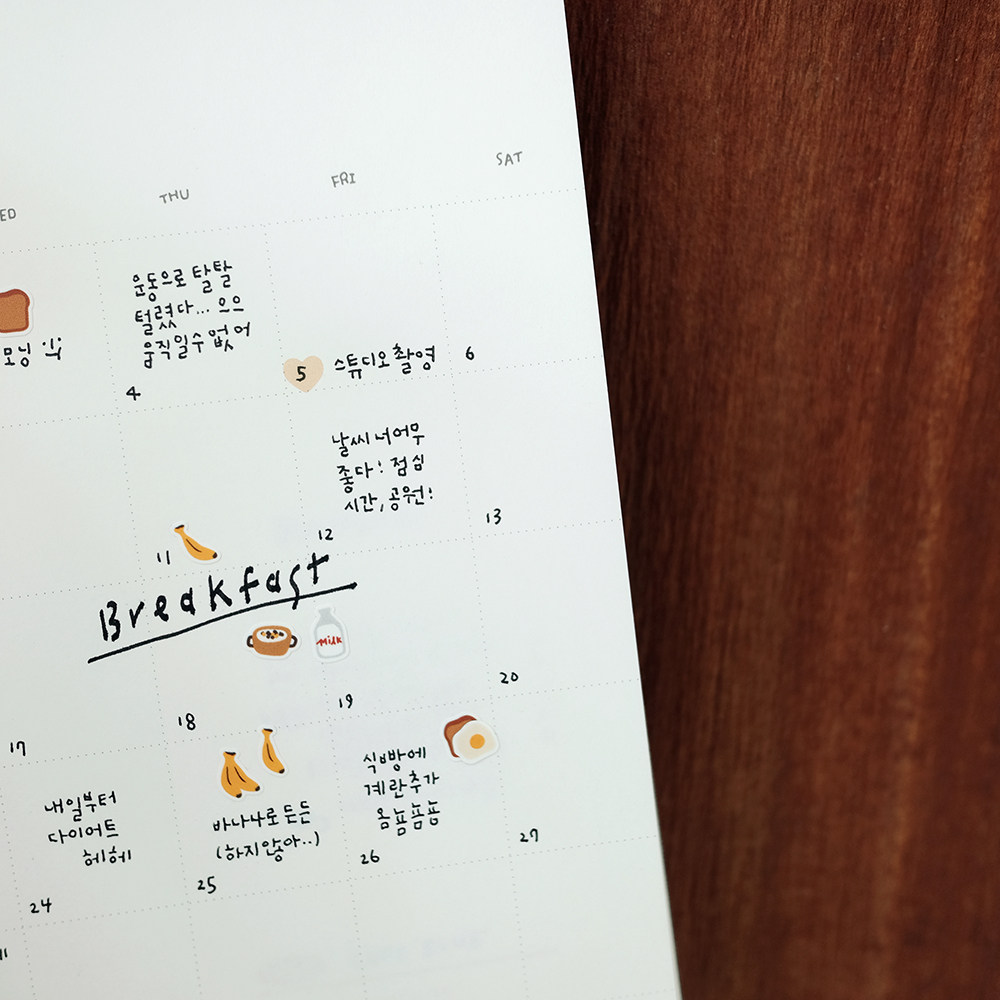 ED
THU
FRI
SAT
모닝 식
운동으로 탈탈
털렸다... 으으
움직일수 없어
4
5
스튜디오 촬영
6
날씨 너어무
좋다! 점심
시간, 공원!
11
12
13
Breakfast
Milk
17
18
19
20
내일부터
다이어트
헤헤
24
바나나로 든든
(하지않아..)
25
식빵에
계란추가
옴뇸뇸뇸
26
27